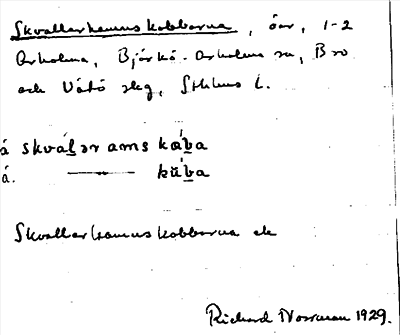 Skvallerhamnskobbarna, öar, 1-2
Arholma, Björkö-Arholma sn, Bro
och Vätö skg, Sthlms L.
å skvál̲ər ams kȧ́b̲a
å. ——— kúb̲a
Skvallerhamnskobbarna ek
Richard Norrman 1929.